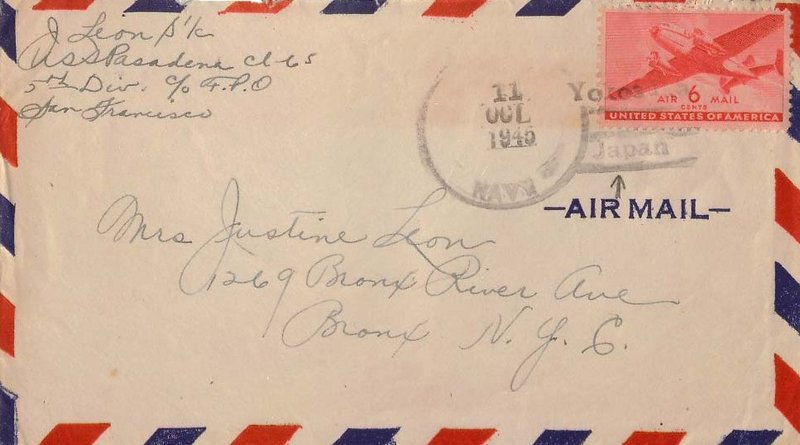 J Leon S1/c
USS Pasadena CL-65
5th Div. c/o F.P.O
San Francisco
11
OCT
1945
NAVY
Japan
AIR 6 MAIL
CENTS
UNITED STATES OF AMERICA
-AIR MAIL-
Mrs Justine Leon
1269 Bronx River Ave
Bronx N.Y.C.